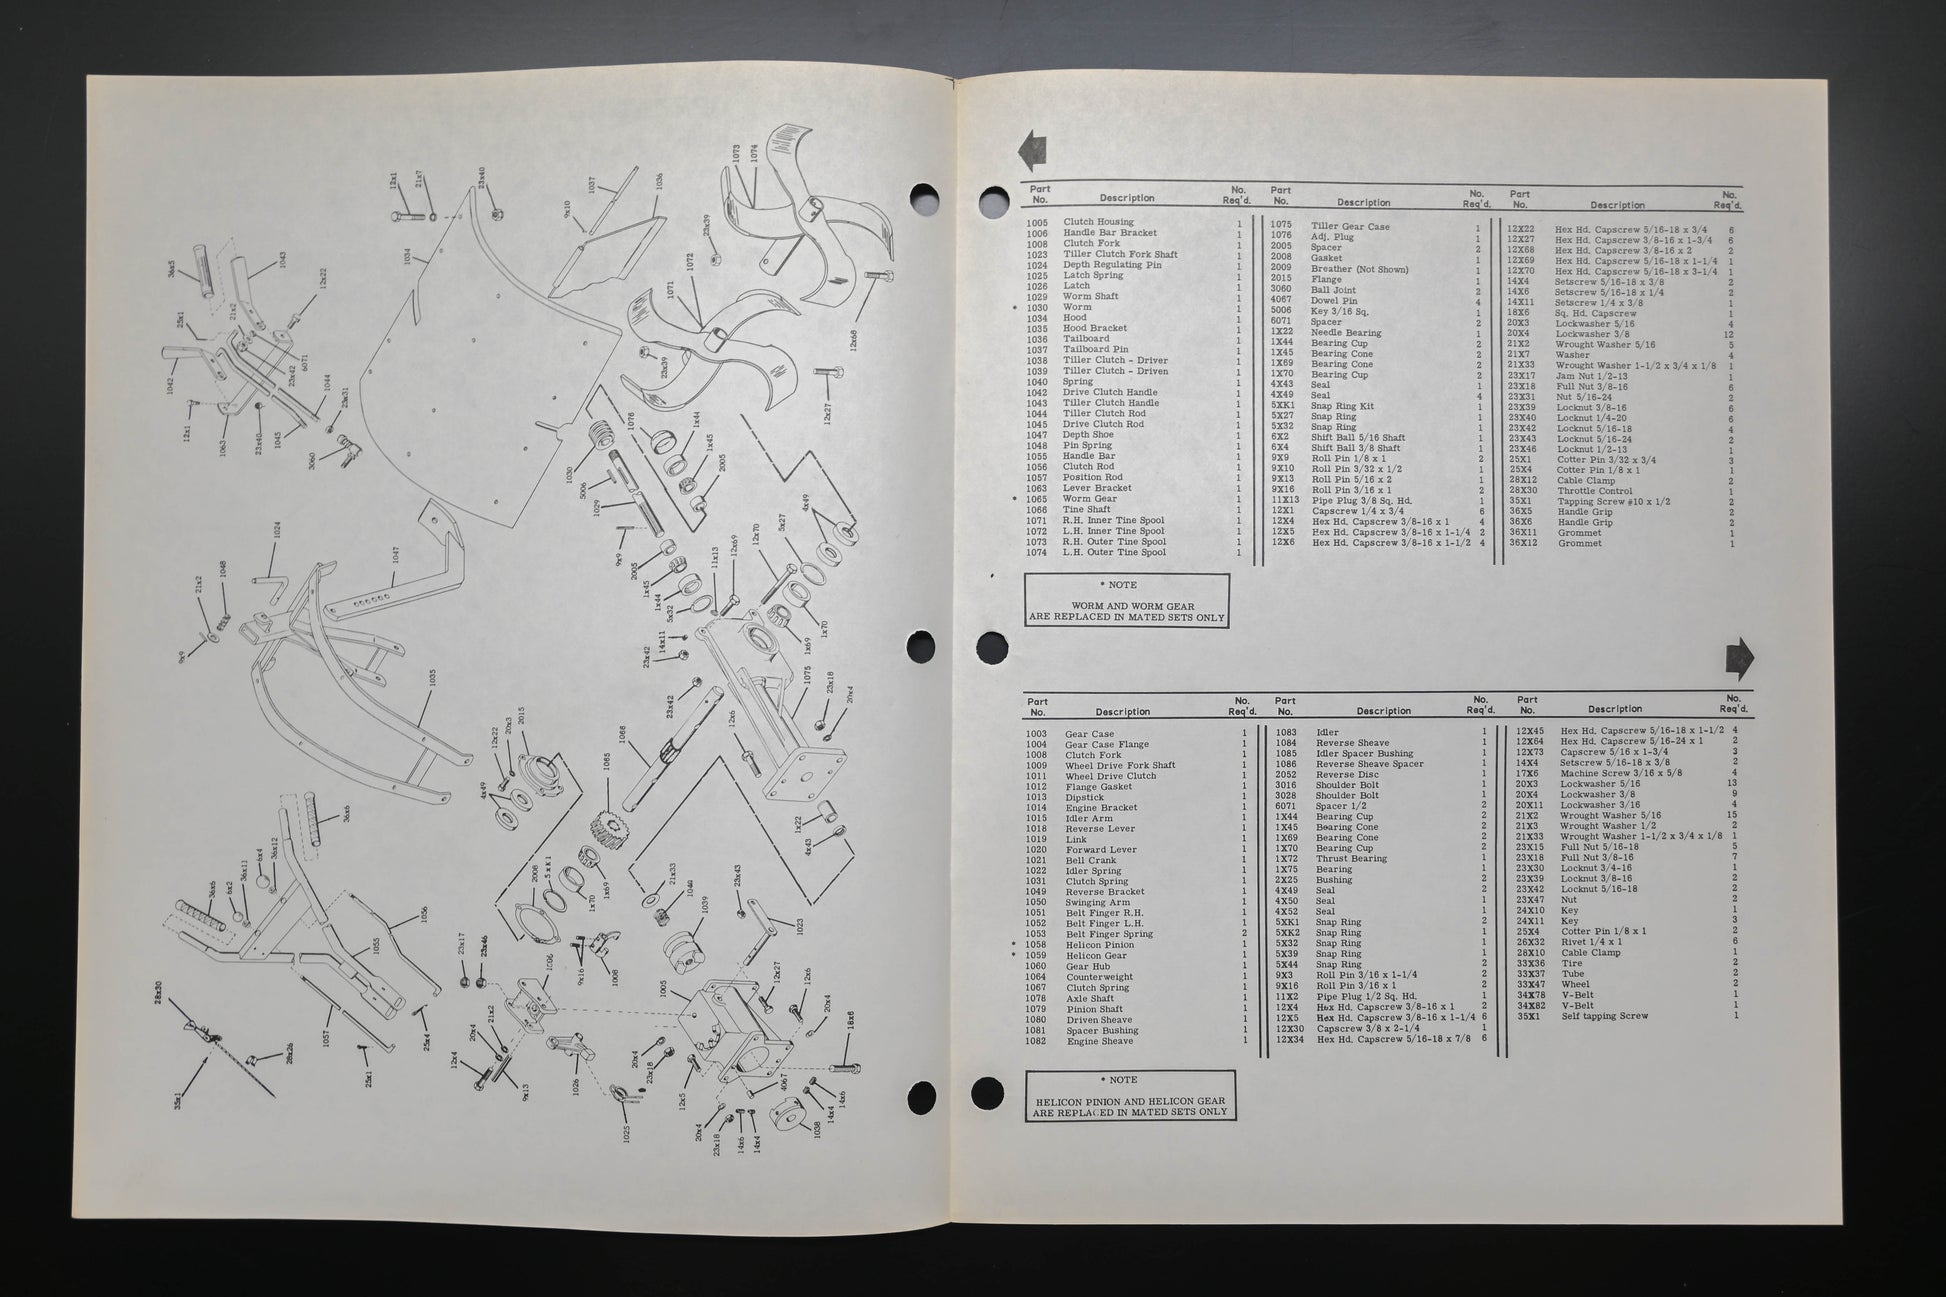 36x5
1043
12x22
25x1
21x2
1042
6071
23x42
1044
23x31
12x1
1063
23x40
1045
3060
12x1
21x7
23x40
1034
9x10
1037
1036
1073
1074
23x39
1072
1071
23x39
12x68
12x27
1076
1x44
1x45
2005
1030
5006
1029
9x9
2005
1x45
1x44
5x32
11x13
12x69
12x70
5x27
4x49
14x11
23x42
1x70
1x69
1075
23x18
20x4
1024
21x2
1048
9x9
1047
1035
23x42
12x6
2015
20x3
12x22
4x49
1065
1x22
4x43
36x6
36x12
6x4
36x11
6x2
36x6
1056
1055
1057
25x4
25x1
28x30
28x26
35x1
2008
5xK1
1x70
1x69
21x33
1040
1039
23x43
1023
23x17
23x46
1006
9x16
1008
1005
12x27
12x6
20x4
18x6
21x2
20x4
12x4
9x13
1026
1025
20x4
23x18
12x5
4067
20x4
23x18
14x6
14x4
1038
14x4
14x6
Part No. Description No. Req'd. Part No. Description No. Req'd. Part No. Description No. Req'd.
1005 Clutch Housing 1
1006 Handle Bar Bracket 1
1008 Clutch Fork 1
1023 Tiller Clutch Fork Shaft 1
1024 Depth Regulating Pin 1
1025 Latch Spring 1
1026 Latch 1
1029 Worm Shaft 1
* 1030 Worm 1
1034 Hood 1
1035 Hood Bracket 1
1036 Tailboard 1
1037 Tailboard Pin 1
1038 Tiller Clutch - Driver 1
1039 Tiller Clutch - Driven 1
1040 Spring 1
1042 Drive Clutch Handle 1
1043 Tiller Clutch Handle 1
1044 Tiller Clutch Rod 1
1045 Drive Clutch Rod 1
1047 Depth Shoe 1
1048 Pin Spring 1
1055 Handle Bar 1
1056 Clutch Rod 1
1057 Position Rod 1
1063 Lever Bracket 1
* 1065 Worm Gear 1
1066 Tine Shaft 1
1071 R.H. Inner Tine Spool 1
1072 L.H. Inner Tine Spool 1
1073 R.H. Outer Tine Spool 1
1074 L.H. Outer Tine Spool 1
1075 Tiller Gear Case 1
1076 Adj. Plug 1
2005 Spacer 2
2008 Gasket 1
2009 Breather (Not Shown) 1
2015 Flange 1
3060 Ball Joint 2
4067 Dowel Pin 4
5006 Key 3/16 Sq. 1
6071 Spacer 2
1X22 Needle Bearing 1
1X44 Bearing Cup 2
1X45 Bearing Cone 2
1X69 Bearing Cone 2
1X70 Bearing Cup 2
4X43 Seal 1
4X49 Seal 4
5XK1 Snap Ring Kit 1
5X27 Snap Ring 1
5X32 Snap Ring 1
6X2 Shift Ball 5/16 Shaft 1
6X4 Shift Ball 3/8 Shaft 1
9X9 Roll Pin 1/8 x 1 2
9X10 Roll Pin 3/32 x 1/2 1
9X13 Roll Pin 5/16 x 2 1
9X16 Roll Pin 3/16 x 1 2
11X13 Pipe Plug 3/8 Sq. Hd. 1
12X1 Capscrew 1/4 x 3/4 6
12X4 Hex Hd. Capscrew 3/8-16 x 1 4
12X5 Hex Hd. Capscrew 3/8-16 x 1-1/4 2
12X6 Hex Hd. Capscrew 3/8-16 x 1-1/2 4
12X22 Hex Hd. Capscrew 5/16-18 x 3/4 6
12X27 Hex Hd. Capscrew 3/8-16 x 1-3/4 6
12X68 Hex Hd. Capscrew 3/8-16 x 2 2
12X69 Hex Hd. Capscrew 5/16-18 x 1-1/4 1
12X70 Hex Hd. Capscrew 5/16-18 x 3-1/4 1
14X4 Setscrew 5/16-18 x 3/8 2
14X6 Setscrew 5/16-18 x 1/4 2
14X11 Setscrew 1/4 x 3/8 1
18X6 Sq. Hd. Capscrew 1
20X3 Lockwasher 5/16 4
20X4 Lockwasher 3/8 12
21X2 Wrought Washer 5/16 5
21X7 Washer 4
21X33 Wrought Washer 1-1/2 x 3/4 x 1/8 1
23X17 Jam Nut 1/2-13 1
23X18 Full Nut 3/8-16 6
23X31 Nut 5/16-24 2
23X39 Locknut 3/8-16 6
23X40 Locknut 1/4-20 6
23X42 Locknut 5/16-18 4
23X43 Locknut 5/16-24 2
23X46 Locknut 1/2-13 1
25X1 Cotter Pin 3/32 x 3/4 3
25X4 Cotter Pin 1/8 x 1 1
28X12 Cable Clamp 2
28X30 Throttle Control 1
35X1 Tapping Screw #10 x 1/2 2
36X5 Handle Grip 2
36X6 Handle Grip 2
36X11 Grommet 1
36X12 Grommet 1
* NOTE
WORM AND WORM GEAR
ARE REPLACED IN MATED SETS ONLY
Part No. Description No. Req'd. Part No. Description No. Req'd. Part No. Description No. Req'd.
1003 Gear Case 1
1004 Gear Case Flange 1
1008 Clutch Fork 1
1009 Wheel Drive Fork Shaft 1
1011 Wheel Drive Clutch 1
1012 Flange Gasket 1
1013 Dipstick 1
1014 Engine Bracket 1
1015 Idler Arm 1
1018 Reverse Lever 1
1019 Link 1
1020 Forward Lever 1
1021 Bell Crank 1
1022 Idler Spring 1
1031 Clutch Spring 1
1049 Reverse Bracket 1
1050 Swinging Arm 1
1051 Belt Finger R.H. 1
1052 Belt Finger L.H. 1
1053 Belt Finger Spring 2
* 1058 Helicon Pinion 1
* 1059 Helicon Gear 1
1060 Gear Hub 1
1064 Counterweight 1
1067 Clutch Spring 1
1078 Axle Shaft 1
1079 Pinion Shaft 1
1080 Driven Sheave 1
1081 Spacer Bushing 1
1082 Engine Sheave 1
1083 Idler 1
1084 Reverse Sheave 1
1085 Idler Spacer Bushing 1
1086 Reverse Sheave Spacer 1
2052 Reverse Disc 1
3016 Shoulder Bolt 1
3028 Shoulder Bolt 1
6071 Spacer 1/2 2
1X44 Bearing Cup 2
1X45 Bearing Cone 2
1X69 Bearing Cone 2
1X70 Bearing Cup 2
1X72 Thrust Bearing 1
1X75 Bearing 1
2X25 Bushing 2
4X49 Seal 2
4X50 Seal 1
4X52 Seal 1
5XK1 Snap Ring 2
5XK2 Snap Ring 1
5X32 Snap Ring 1
5X39 Snap Ring 1
5X44 Snap Ring 2
9X3 Roll Pin 3/16 x 1-1/4 2
9X16 Roll Pin 3/16 x 1 2
11X2 Pipe Plug 1/2 Sq. Hd. 1
12X4 Hex Hd. Capscrew 3/8-16 x 1 2
12X5 Hex Hd. Capscrew 3/8-16 x 1-1/4 6
12X30 Capscrew 3/8 x 2-1/4 1
12X34 Hex Hd. Capscrew 5/16-18 x 7/8 6
12X45 Hex Hd. Capscrew 5/16-18 x 1-1/2 4
12X64 Hex Hd. Capscrew 5/16-24 x 1 2
12X73 Capscrew 5/16 x 1-3/4 3
14X4 Setscrew 5/16-18 x 3/8 2
17X6 Machine Screw 3/16 x 5/8 4
20X3 Lockwasher 5/16 13
20X4 Lockwasher 3/8 9
20X11 Lockwasher 3/16 4
21X2 Wrought Washer 5/16 15
21X3 Wrought Washer 1/2 2
21X33 Wrought Washer 1-1/2 x 3/4 x 1/8 1
23X15 Full Nut 5/16-18 5
23X18 Full Nut 3/8-16 7
23X30 Locknut 3/4-16 1
23X39 Locknut 3/8-16 2
23X42 Locknut 5/16-18 2
23X47 Nut 2
24X10 Key 1
24X11 Key 3
25X4 Cotter Pin 1/8 x 1 2
26X32 Rivet 1/4 x 1 6
28X10 Cable Clamp 1
33X36 Tire 2
33X37 Tube 2
33X47 Wheel 2
34X78 V-Belt 1
34X82 V-Belt 1
35X1 Self tapping Screw 1
* NOTE
HELICON PINION AND HELICON GEAR
ARE REPLACED IN MATED SETS ONLY